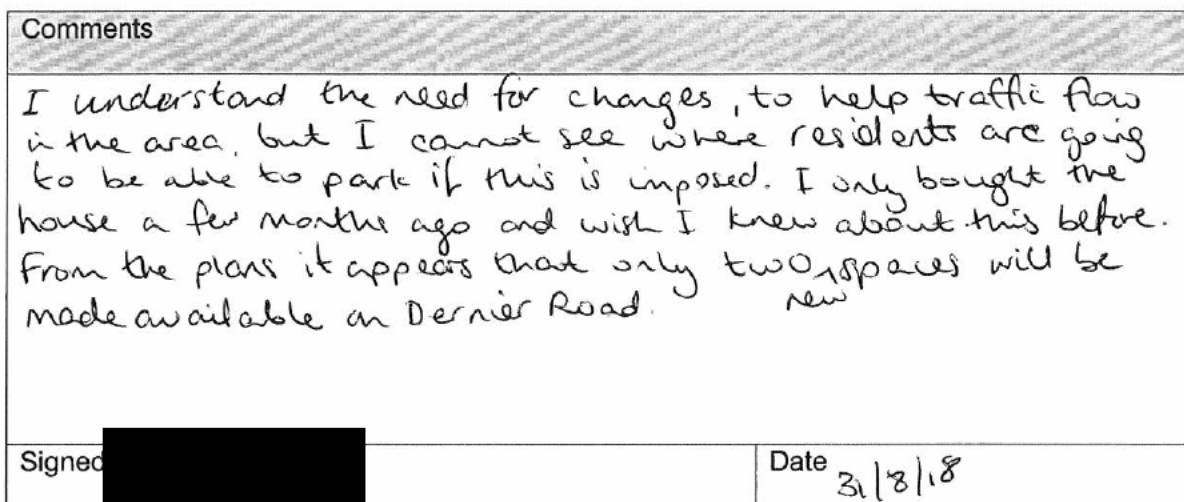 Comments
I understand the need for changes, to help traffic flow
in the area, but I cannot see where residents are going
to be able to park if this is imposed. I only bought the
house a few months ago and wish I knew about this before.
From the plans it appears that only two new spaces will be
made available on Dernier Road.
Signed
Date 31/8/18